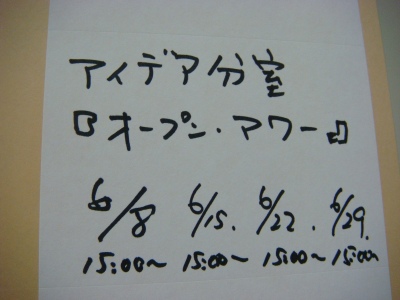 アイデア分室
『オープン・アワー』
6/8 6/15. 6/22. 6/29.
15:00～ 15:00～ 15:00～ 15:00～